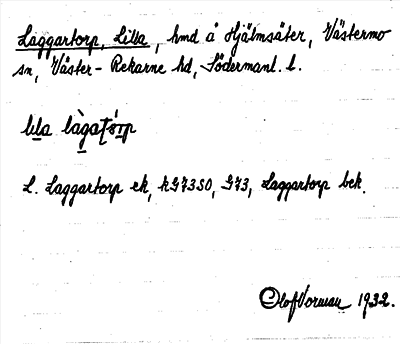 Laggartorp, Lilla, hmd å Hjälmsäter, Västermo
sn, Väster-Rekarne hd, Södermanl. l.
lı̲la làgaţó̲rp
L. Laggartorp ek, hG7350, G73, Laggartorp bek.
Olof Vorman 1932.